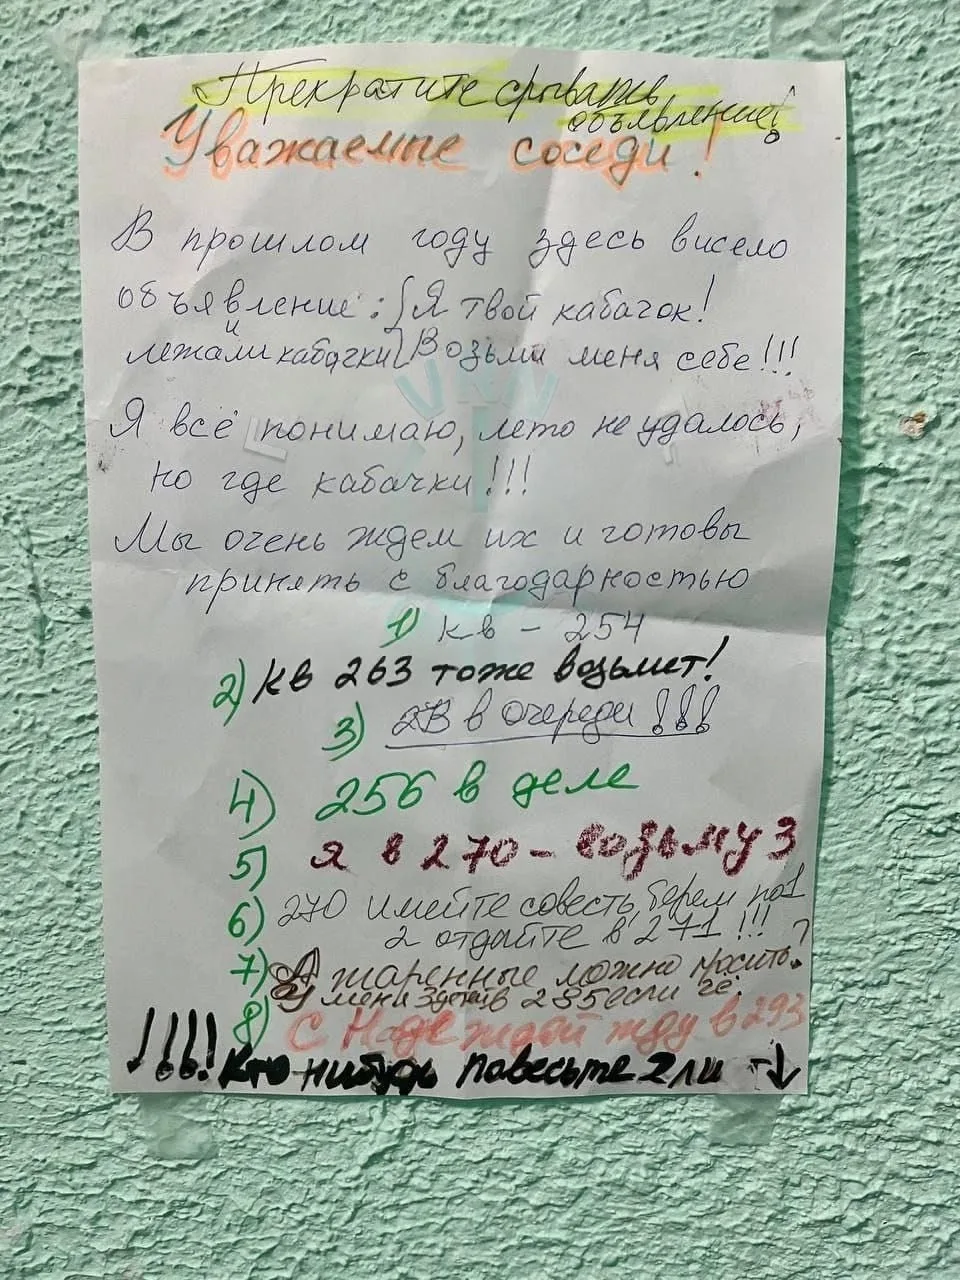 Прекратите срывать
объявление!
Уважаемые соседи!
В прошлом году здесь висело
объявление: Я твой кабачок!
и
лежали кабачки Возьми меня себе!!!
Я всё понимаю, лето не удалось,
но где кабачки!!!
Мы очень ждем их и готовы
принять с благодарностью
1) кв - 254
2) кв 263 тоже возьмет!
3) 2В в очереди!!!
4) 256 в деле
5) я в 270 - возьму 3
6) 270 имейте совесть берем по 1
2 отдайте в 271!!!
7) А жаренные можно просить?
У меня 3 детей в 235 если чё.
8) С Надеждой жду в 293
!!!! Кто нибудь повесьте 2 ли